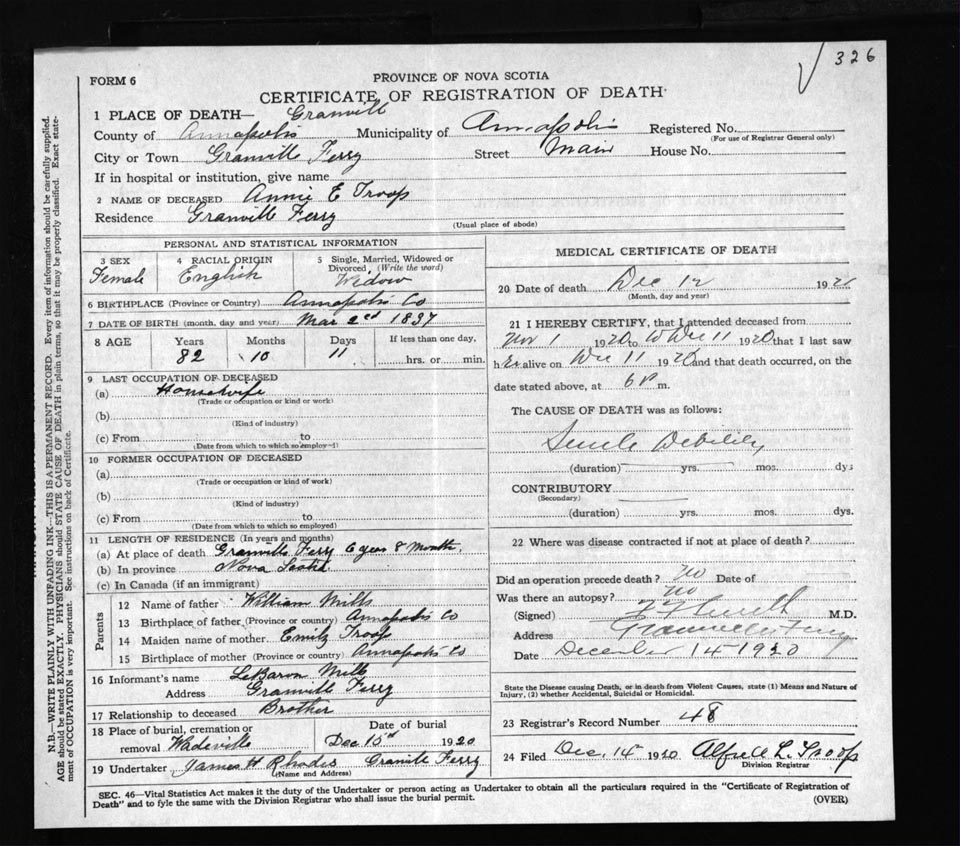 326
FORM 6
PROVINCE OF NOVA SCOTIA
CERTIFICATE OF REGISTRATION OF DEATH
1 PLACE OF DEATH— Granvill
County of Annapolis Municipality of Annapolis Registered No.
(For use of Registrar General only)
City or Town Granvill Ferry Street Main House No.
If in hospital or institution, give name
2 NAME OF DECEASED Annie E Troop
Residence Granvill Ferry
(Usual place of abode)
PERSONAL AND STATISTICAL INFORMATION
3 SEX 4 RACIAL ORIGIN 5 Single, Married, Widowed or
Divorced, (Write the word)
Female English Widow
6 BIRTHPLACE (Province or Country) Annapolis Co
7 DATE OF BIRTH (month, day and year) Mar 2nd 1837
8 AGE Years Months Days If less than one day,
82 10 11 hrs. or min.
9 LAST OCCUPATION OF DECEASED
(a) Housewife
(Trade or occupation or kind or work)
(b)
(Kind of industry)
(c) From to
(Date from which to which so employed)
10 FORMER OCCUPATION OF DECEASED
(a)
(Trade or occupation or kind of work)
(b)
(Kind of industry)
(c) From to
(Date from which to which so employed)
11 LENGTH OF RESIDENCE (In years and months)
(a) At place of death Granville Ferry 6 years 8 Months
(b) In province Nova Scotia
(c) In Canada (if an immigrant)
Parents
12 Name of father William Mills
13 Birthplace of father (Province or country) Annapolis Co
14 Maiden name of mother Emily Troop
15 Birthplace of mother (Province or country) Annapolis Co
16 Informant's name LeBaron Mills
Address Granvill Ferry
17 Relationship to deceased Brother
18 Place of burial, cremation or Date of burial
removal Wadeville Dec 15th 1920
19 Undertaker James H Rhodes Granvill Ferry
(Name and Address)
MEDICAL CERTIFICATE OF DEATH
20 Date of death Dec 12 192
(Month, day and year)
21 I HEREBY CERTIFY, that I attended deceased from
Nov 1 1920 to Dec 11 1920 that I last saw
her alive on Dec 11 1920 and that death occurred, on the
date stated above, at 6 P m.
The CAUSE OF DEATH was as follows:
Senile Debility
(duration) yrs. mos. dys
CONTRIBUTORY
(Secondary)
(duration) yrs. mos. dys.
22 Where was disease contracted if not at place of death?
Did an operation precede death? no Date of
Was there an autopsy? no
(Signed) M.D.
Address Granville Ferry
Date December 14 1920
State the Disease causing Death, or in death from Violent Causes, state (1) Means and Nature of
Injury, (2) whether Accidental, Suicidal or Homicidal.
23 Registrar's Record Number 48
24 Filed Dec. 14 1920 Alfred L. Troop
Division Registrar
SEC. 46—Vital Statistics Act makes it the duty of the Undertaker or person acting as Undertaker to obtain all the particulars required in the "Certificate of Registration of
Death" and to fyle the same with the Division Registrar who shall issue the burial permit.
(OVER)
N.B.—WRITE PLAINLY WITH UNFADING INK—THIS IS A PERMANENT RECORD. Every item of information should be carefully supplied.
AGE should be stated EXACTLY. PHYSICIANS should STATE CAUSE OF DEATH in plain terms, so that it may be properly classified. Exact state-
ment of OCCUPATION is very important. See instructions on back of Certificate.